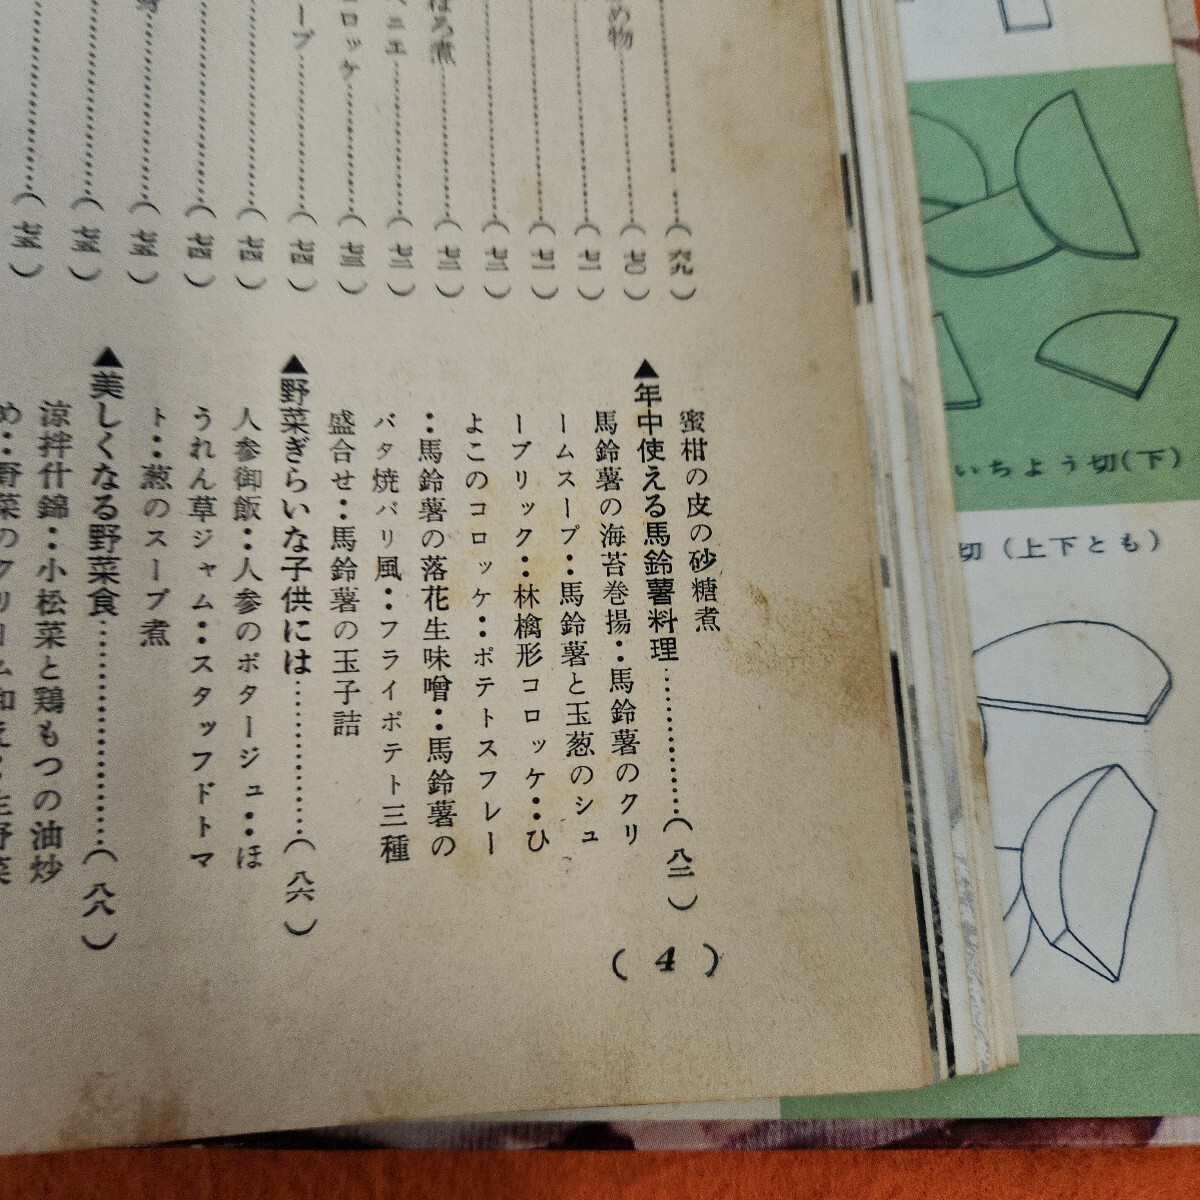 (六九)
め物(七〇)
(七一)
(七一)
(七二)
ぼろ煮(七二)
ベニエ(七二)
コロッケ(七三)
ープ(七四)
(七四)
(七四)
(七五)
(七五)
(七五)
蜜柑の皮の砂糖煮
▲年中使える馬鈴薯料理…………(八二)
馬鈴薯の海苔巻揚‥馬鈴薯のクリ
ームスープ‥馬鈴薯と玉葱のシュ
ーブリック‥林檎形コロッケ‥ひ
よこのコロッケ‥ポテトスフレー
‥馬鈴薯の落花生味噌‥馬鈴薯の
バタ焼バリ風‥フライポテト三種
盛合せ‥馬鈴薯の玉子詰
▲野菜ぎらいな子供には…………(八六)
人参御飯‥人参のポタージュ‥ほ
うれん草ジャム‥スタッフドトマ
ト‥葱のスープ煮
▲美しくなる野菜食…………(八八)
涼拌什錦‥小松菜と鶏もつの油炒
め‥野菜のクリーム和え‥生野菜
(4)
いちよう切(下)
切(上下とも)